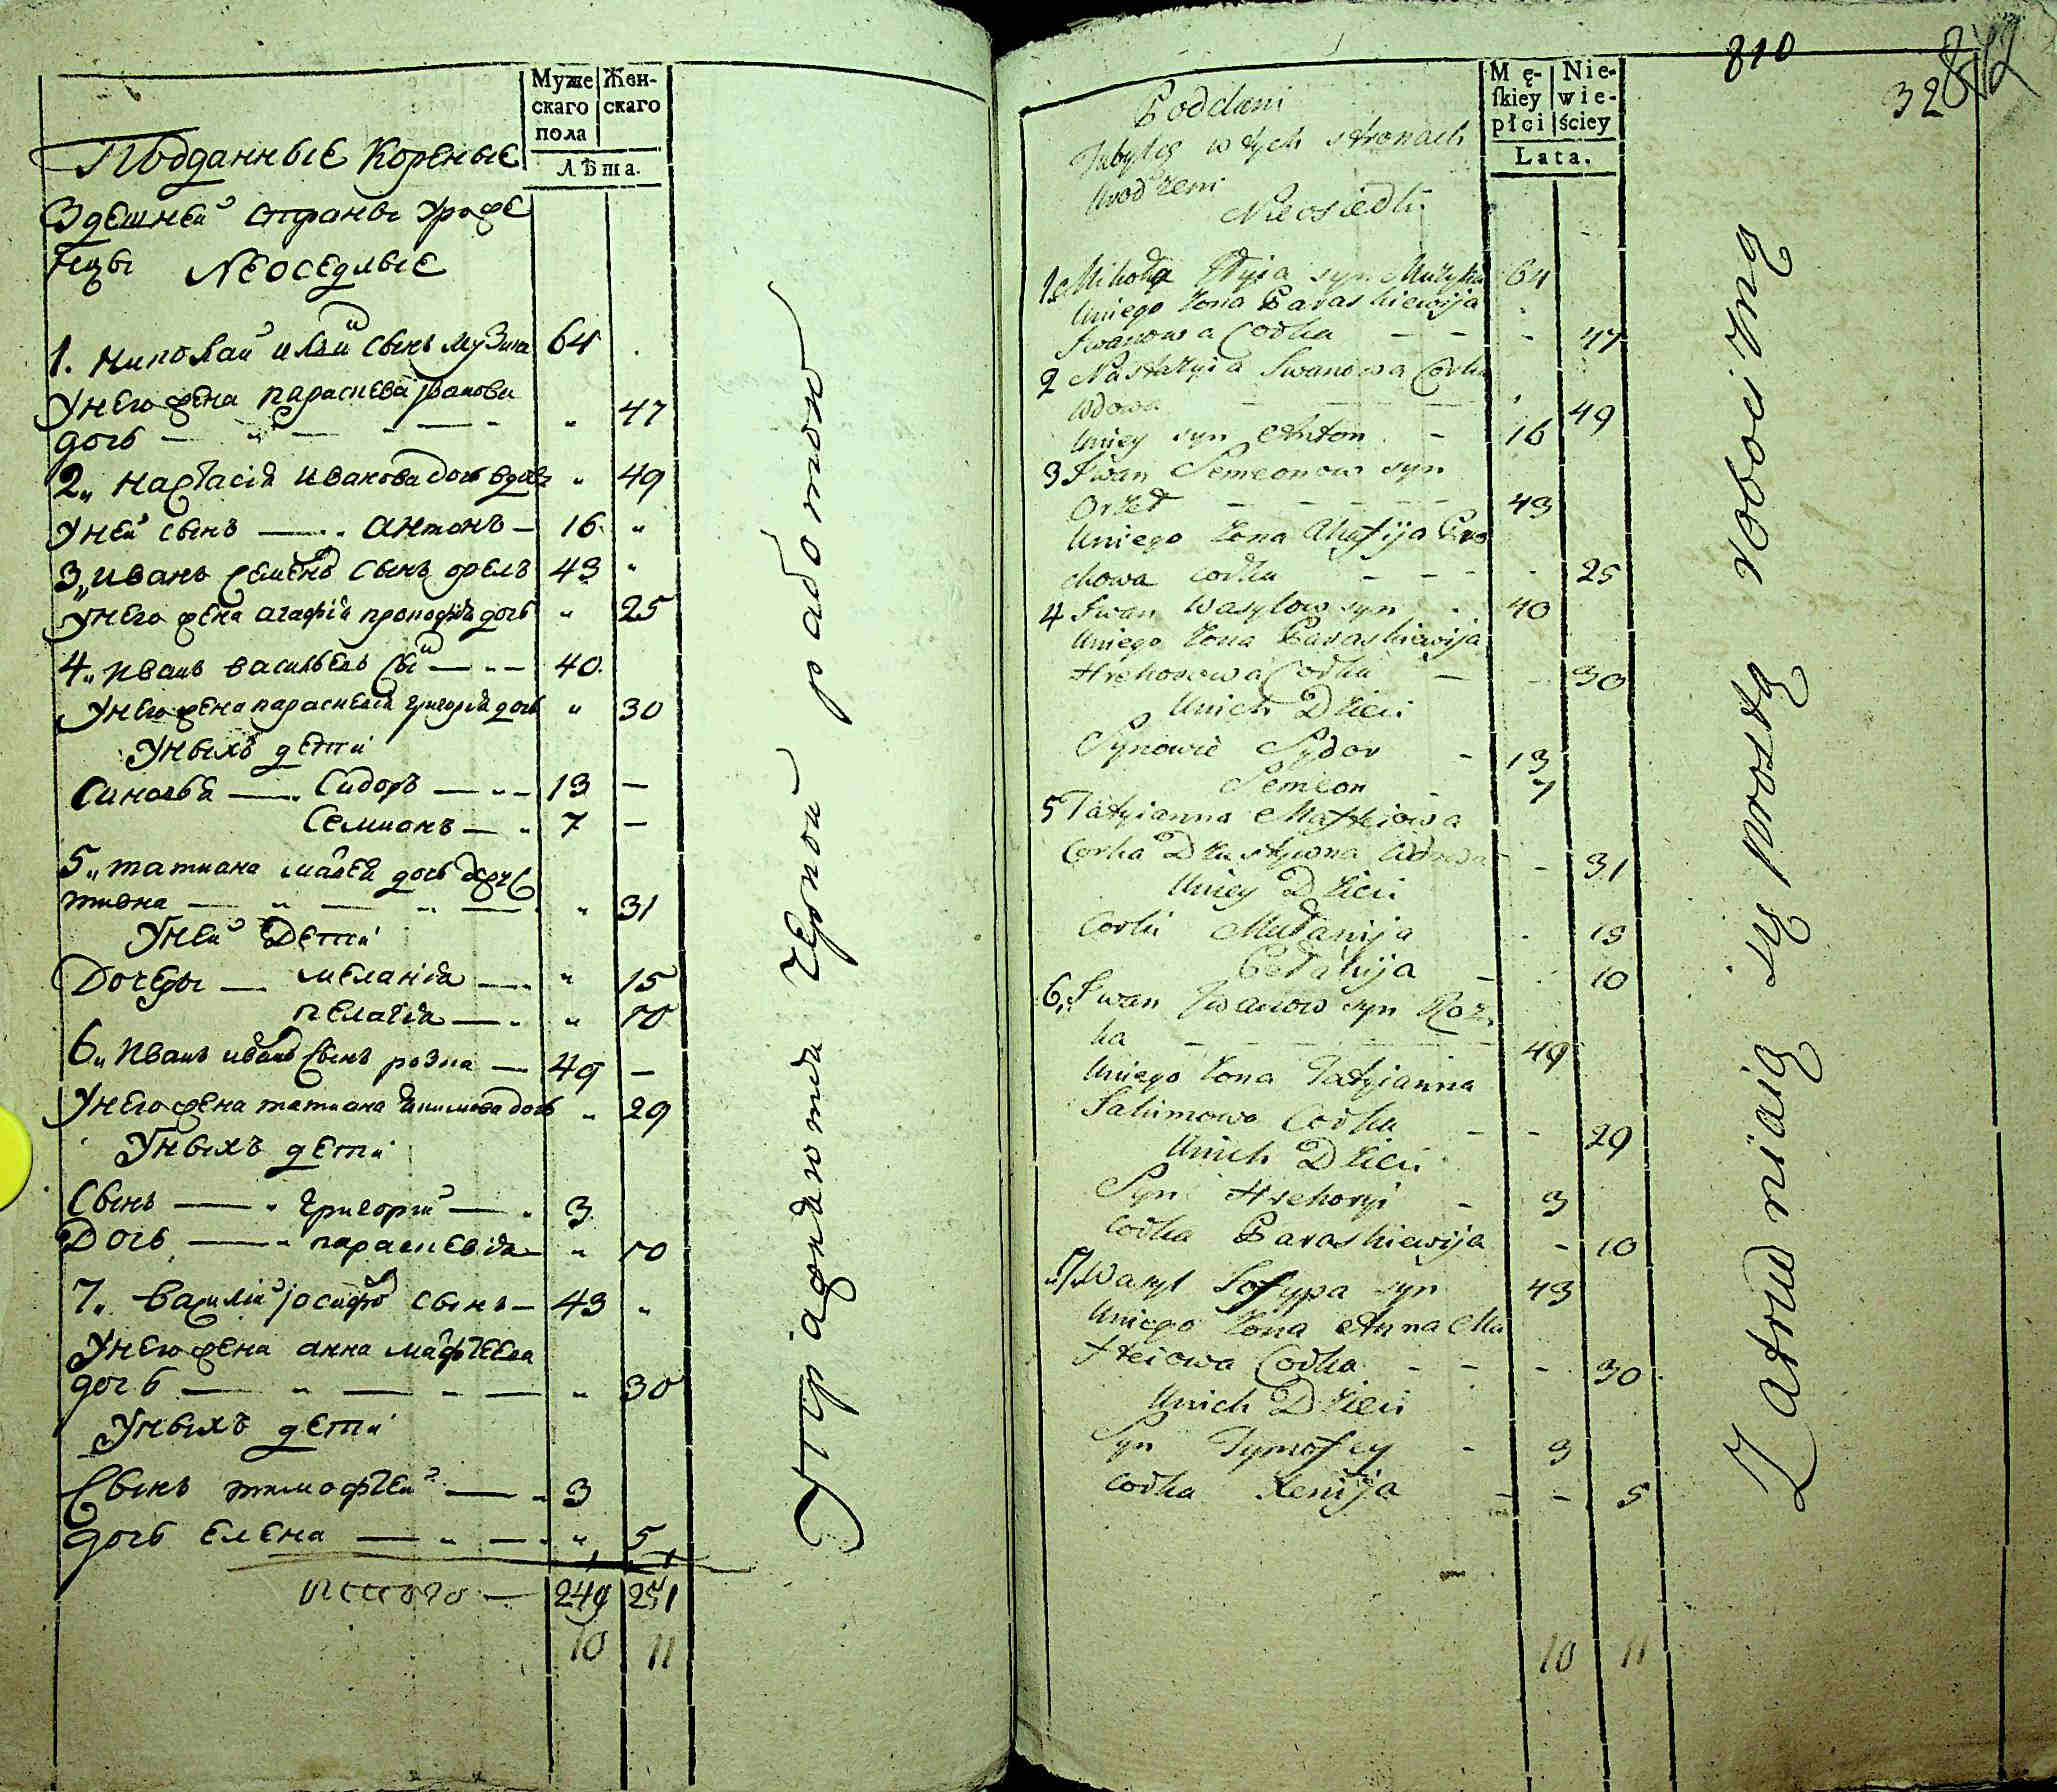 Муже Жен-
скаго скаго
пола
Лѣта.
Подданные Кореные
Здешней страны уроже
нцы Неоседлые
1. Николай Илiи сынъ музика 64
У него жена параскева Iванова
дочь 47
2 Настасiя Иванова дочь вдова 49
У ней сынъ Антонъ 16
3 Иванъ семенов сынъ орелъ 43
У него жена агафiя прокофiя дочь 25
4 Иванъ васильевъ сы 40
У него жена параскевiя григорiя дочь 30
У ныхъ дети
Синовья Сидоръ 13
Семионъ 7
5 татиана дочь
31
У ней Дети
Дочеры меланiя 15
пелагiя 10
6 Иванъ иванов сынъ розка 49
У него жена татиана якимова дочь 29
У ныхъ дети
Сынъ григорий 3
Дочь параскевiя 10
7 Василiй iосифов сынъ 43
У него жена анна мафтеева
дочь 30
У ныхъ дети
Сынъ тимофтей 3
дочь елена 5
итого 249 251
10 11
Упражняются черною работою
810
328
Mę- Nie-
skiey wie-
płci ściey
Lata.
Poddani
Zabytey w tych stronach
urodzeni
Nieosiedli
1 Mikoła Illyia syn Muzyka 64
Uniego żona Paraskiewija
Iwanowa Corka 47
2 Nastazyia Iwanowa Corka
Wdowa 49
Uniey syn Anton 16
3 Iwan Semeonow syn
Orzeł 43
Uniego żona Ahafija Pro
chowa corka 25
4 Iwan Wasylow syn 40
Uniego żona Paraskiewija
Hrehorowa Corka 30
Unich Dzieci
Synowie Sydor 13
Semeon 7
5 Tatyianna Matwiowa
Corka Wdowa 31
Uniey Dzieci
Corki Mełanija 15
Pełahija 10
6 Iwan Iwanow syn Roz
ka 49
Uniego żona Tatyianna
Jakimowa Corka 29
Unich Dzieci
Syn Hrehoryi 3
Corka Paraskiewija 10
7 Wasyl Josypa syn 43
Uniego żona Anna Ma
fteiowa Corka 30
Unich Dzieci
Syn Tymofey 3
Corka Xenija 5
10 11
Zatrudniaią się prostą robocizną